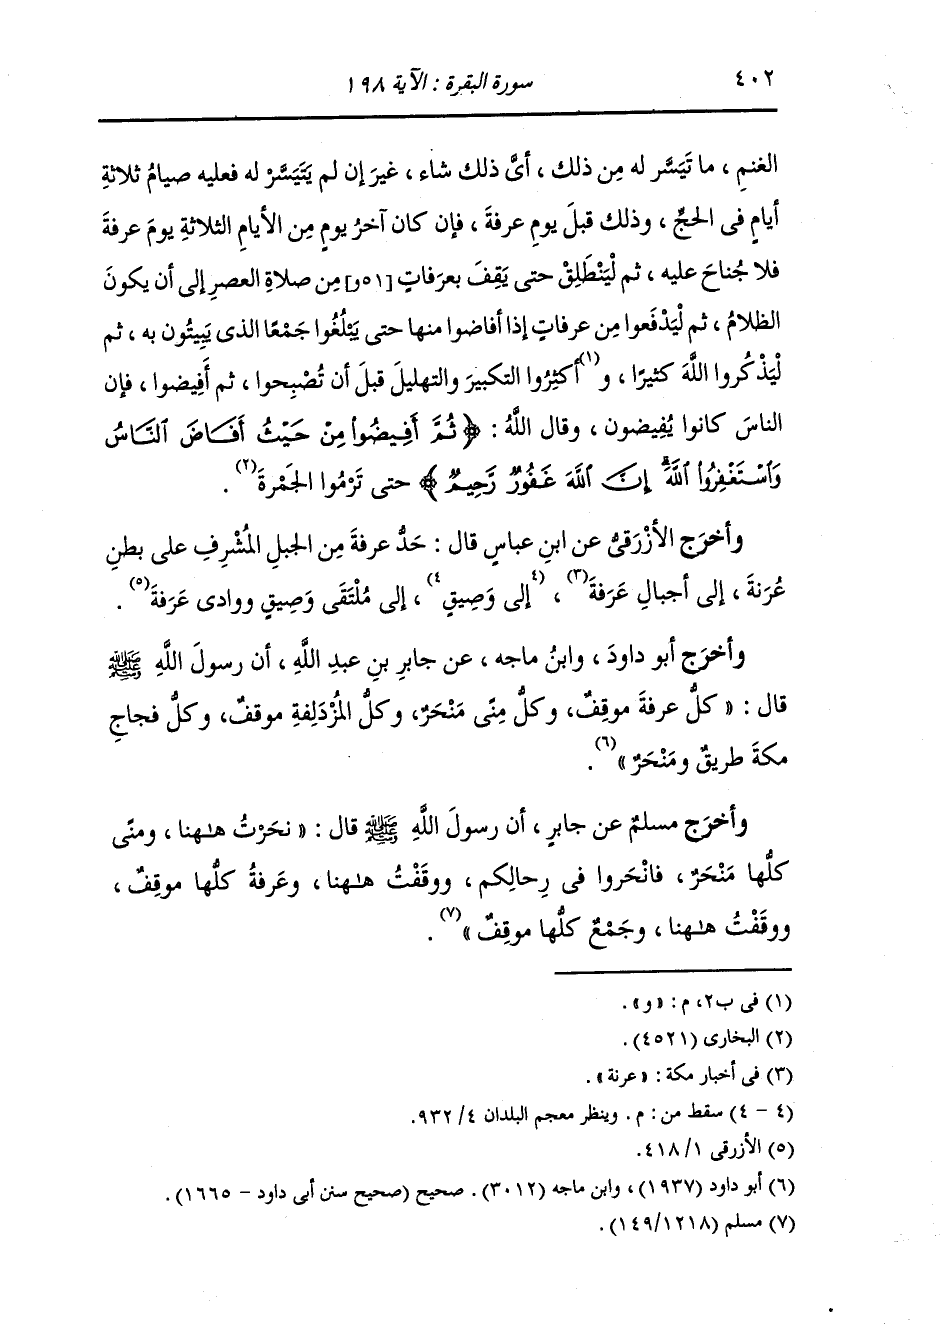 ٤٠٢ سورة البقرة : الآية ١٩٨
الغنمِ ، ما تَيَسَّر له مِن ذلك ، أىَّ ذلك شاء ، غيرَ إن لم يَتَيَسَّرْ له فعليه صيامُ ثلاثةِ
أيامٍ فى الحجِّ ، وذلك قبلَ يومِ عرفةَ ، فإن كان آخرُ يومٍ مِن الأيامِ الثلاثةِ يومَ عرفةَ
فلا جُناحَ عليه ، ثم لْيَنْطَلِقْ حتى يَقِفَ بعرفاتٍ [٥١و] مِن صلاةِ العصرِ إلى أن يكونَ
الظلامُ ، ثم لْيَدْفَعوا مِن عرفاتٍ إذا أفاضوا منها حتى يَبْلُغُوا جَمْعًا الذى يَبِيتُون به ، ثم
لْيَذْكُروا اللَّهَ كثيرًا ، و(١)أكثِرُوا التكبيرَ والتهليلَ قبلَ أن تُصْبِحوا ، ثم أَفِيضوا ، فإن
الناسَ كانوا يُفِيضون ، وقال اللَّهُ : ﴿ ثُمَّ أَفِيضُواْ مِنْ حَيْثُ أَفَاضَ ٱلنَّاسُ
وَٱسْتَغْفِرُواْ ٱللَّهَۚ إِنَّ ٱللَّهَ غَفُورٌ رَّحِيمٌ ﴾ حتى تَرْمُوا الجَمْرةَ(٢) .
وأخرَج الأزْرَقىُّ عن ابنِ عباسٍ قال : حَدُّ عرفةَ مِن الجبلِ المُشْرِفِ على بطنِ
عُرَنةَ ، إلى أجبالِ عَرَفةَ(٣) ، (٤إلى وَصِيقٍ٤) ، إلى مُلْتَقَى وَصِيقٍ ووادى عَرَفةَ(٥) .
وأخرَج أبو داودَ ، وابنُ ماجه ، عن جابرِ بنِ عبدِ اللَّهِ ، أن رسولَ اللَّهِ ﷺ
قال : « كلُّ عرفةَ موقِفٌ، وكلُّ مِنًى مَنْحَرٌ، وكلُّ المُزْدَلِفةِ موقفٌ، وكلُّ فجاجِ
مكةَ طريقٌ ومَنْحَرٌ »(٦).
وأخرَج مسلمٌ عن جابرٍ ، أن رسولَ اللَّهِ ﷺ قال : « نحَرْتُ هلهنا ، ومنًى
كلُّها مَنْحَرٌ ، فانْحَروا فى رِحالِكم ، ووقَفْتُ هلهنا ، وعَرفةُ كلُّها موقِفٌ ،
ووقَفْتُ هلهنا ، وجَمْعٌ كلُّها موقِفٌ »(٧) .
(١) فى ب٢، م : «و» .
(٢) البخارى (٤٥٢١) .
(٣) فى أخبار مكة : «عرنة» .
(٤ - ٤) سقط من : م . وينظر معجم البلدان ٤/ ٩٣٢.
(٥) الأزرقى ١/ ٤١٨.
(٦) أبو داود (١٩٣٧) ، وابن ماجه (٣٠١٢) . صحيح (صحيح سنن أبى داود - ١٦٦٥) .
(٧) مسلم (١٤٩/١٢١٨) .